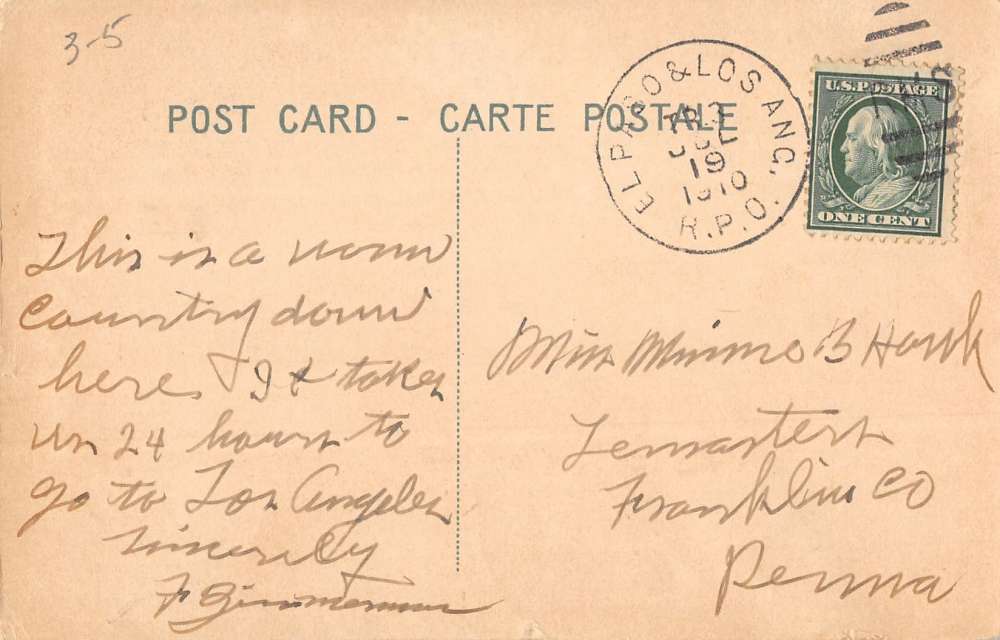 3-5
POST CARD - CARTE POSTALE
EL PASO & LOS ANG.
TR 3
JUL
19
1910
R.P.O.
U.S. POSTAGE
ONE CENT
This is a warm
Country down
here & It takes
us 24 hours to
go to Los Angeles
Sincerely
F Zimmerman
Miss Minnie B Hawk
Lemasters
Franklin CO
Penna